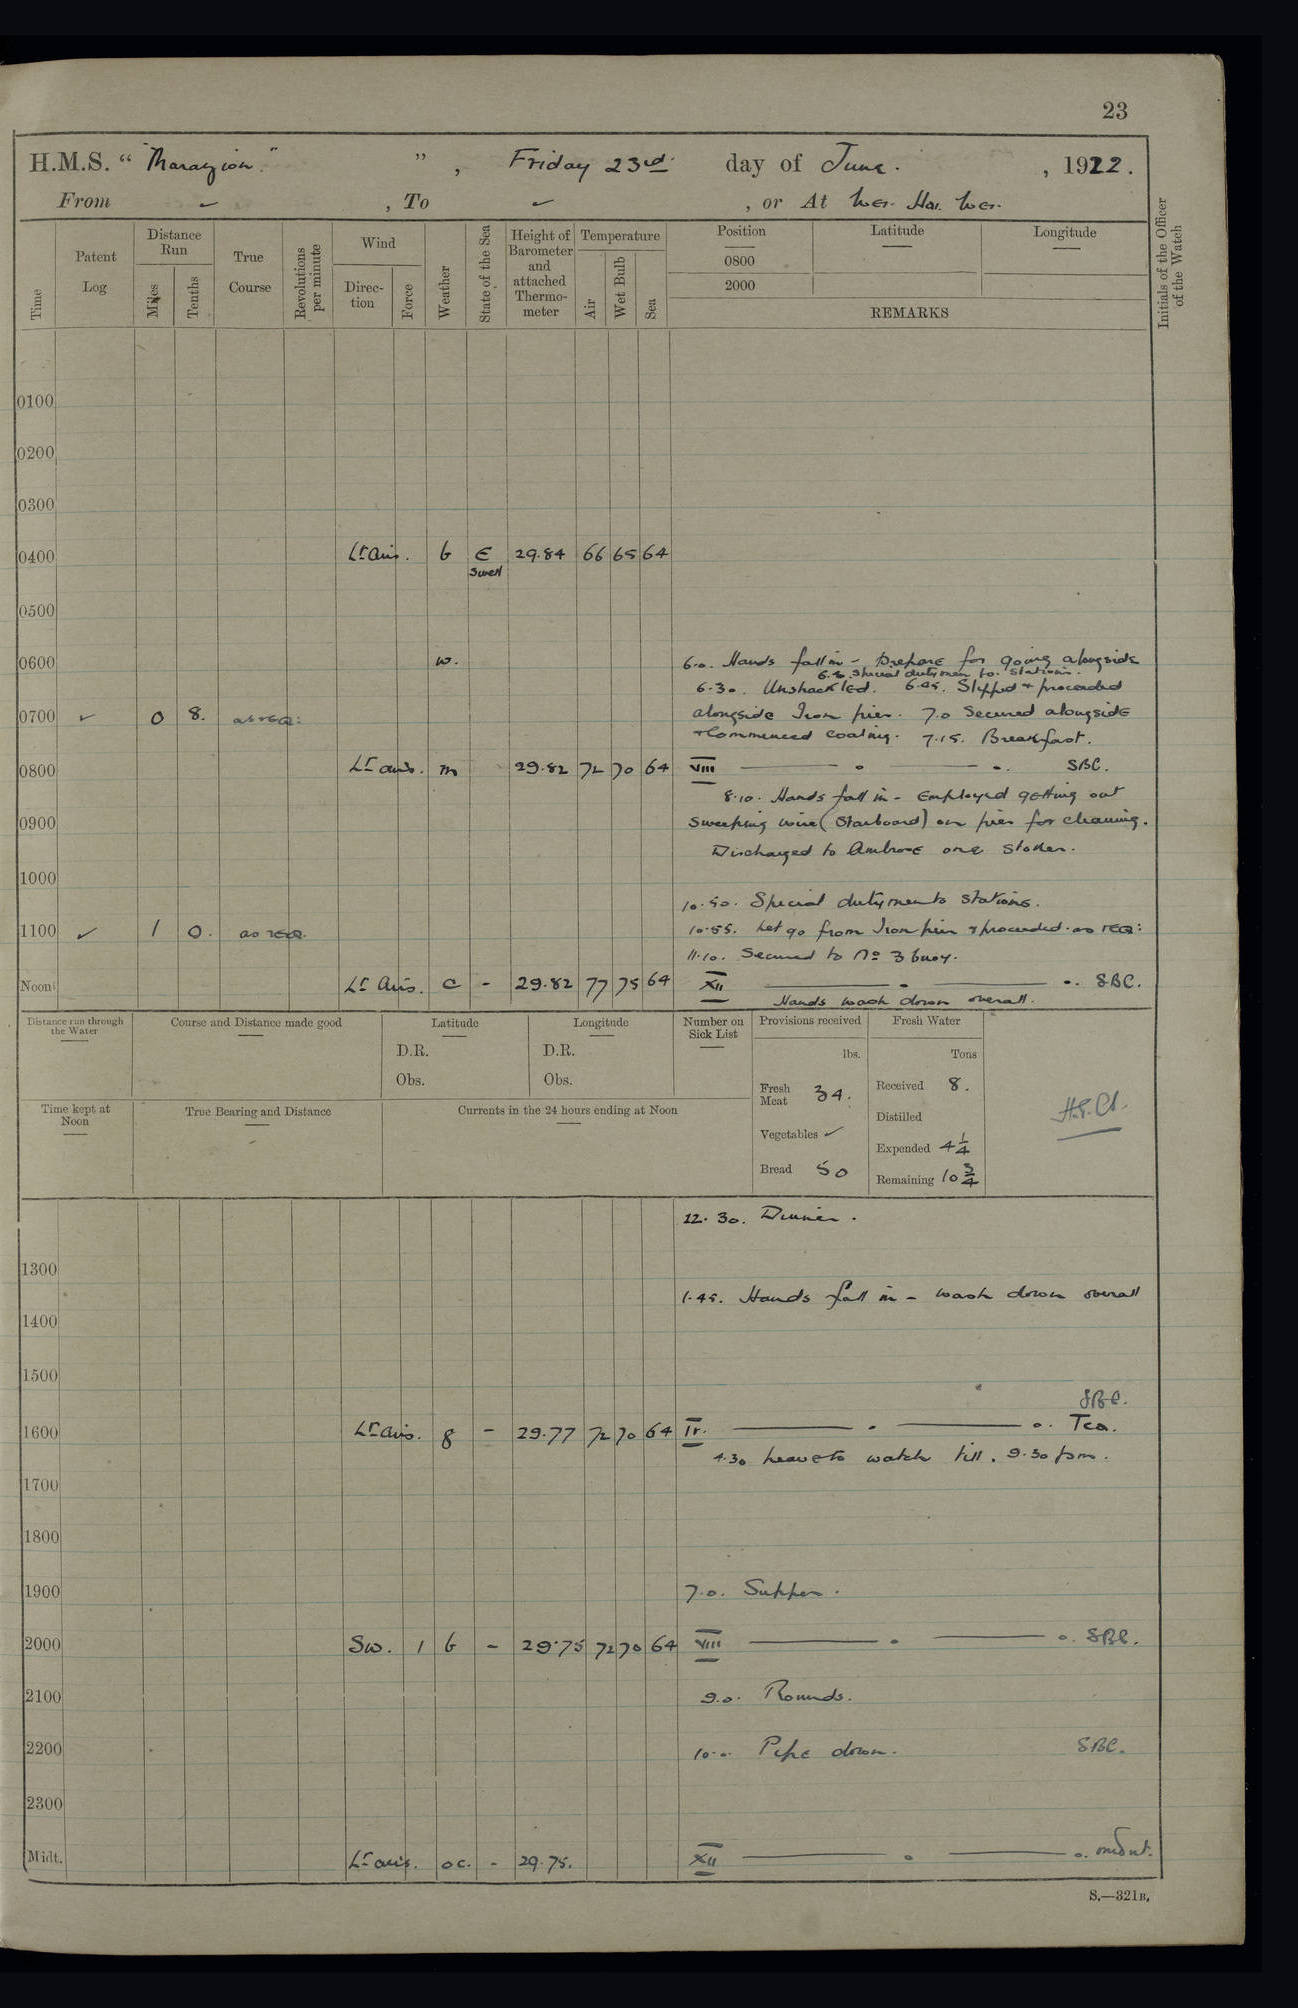 23
H.M.S. “ "Marazion." ” , Friday 23rd. day of June. , 1922.
From ✓ , To ✓ , or At Wei. Hai. Wei.
Time
Patent Log
Distance Run
Miles
Tenths
True Course
Revolutions per minute
Wind
Direction
Force
Weather
State of the Sea
Height of Barometer and attached Thermometer
Temperature
Air
Wet Bulb
Sea
Position
0800
2000
Latitude
Longitude
REMARKS
Initials of the Officer of the Watch
0100
0200
0300
0400 Lt airs. b E Swell 29.84 66 65 64
0500
0600 w. 6.0. Hands fall in - Prepare for going alongside
6.40. Special dutymen to stations.
6.30. Unshackled. 6.45. Slipped + proceeded
0700 ✓ 0 8. as req: alongside Iron pier. 7.0 Secured alongside
+ Commenced coaling. 7.15. Breakfast.
0800 Lt airs. m 29.82 72 70 64 VIII SBC.
8.10. Hands fall in - Employed getting out
0900 sweeping wire (Starboard) on pier for cleaning.
Discharged to Ambrose one Stoker.
1000
10.50. Special dutymen to stations.
1100 ✓ 1 0. as req. 10.55. Let go from Iron pier + proceeded as req:
11.10. Secured to No 3 buoy.
Noon Lt Airs. c - 29.82 77 75 64 XII SBC.
Hands wash down overall.
Distance run through the Water
Course and Distance made good
Latitude
D.R.
Obs.
Longitude
D.R.
Obs.
Number on Sick List
Provisions received
lbs.
Fresh Meat 34.
Vegetables ✓
Bread 50
Fresh Water
Tons
Received 8.
Distilled
Expended 4 1/4
Remaining 10 3/4
Time kept at Noon
True Bearing and Distance
Currents in the 24 hours ending at Noon
12.30. Dinner.
1300
1.45. Hands fall in - wash down overall
1400
1500
SBC.
1600 Lt airs. g - 29.77 72 70 64 IV. Tea.
4.30 Leave to watch till. 9.30 pm.
1700
1800
1900 7.0. Supper.
2000 SW. 1 b - 29.75 72 70 64 VIII SBC.
2100 9.0. Rounds.
2200 10.0. Pipe down. SBC.
2300
Midt. Lt airs. oc. - 29.75. XII
S.—321B.